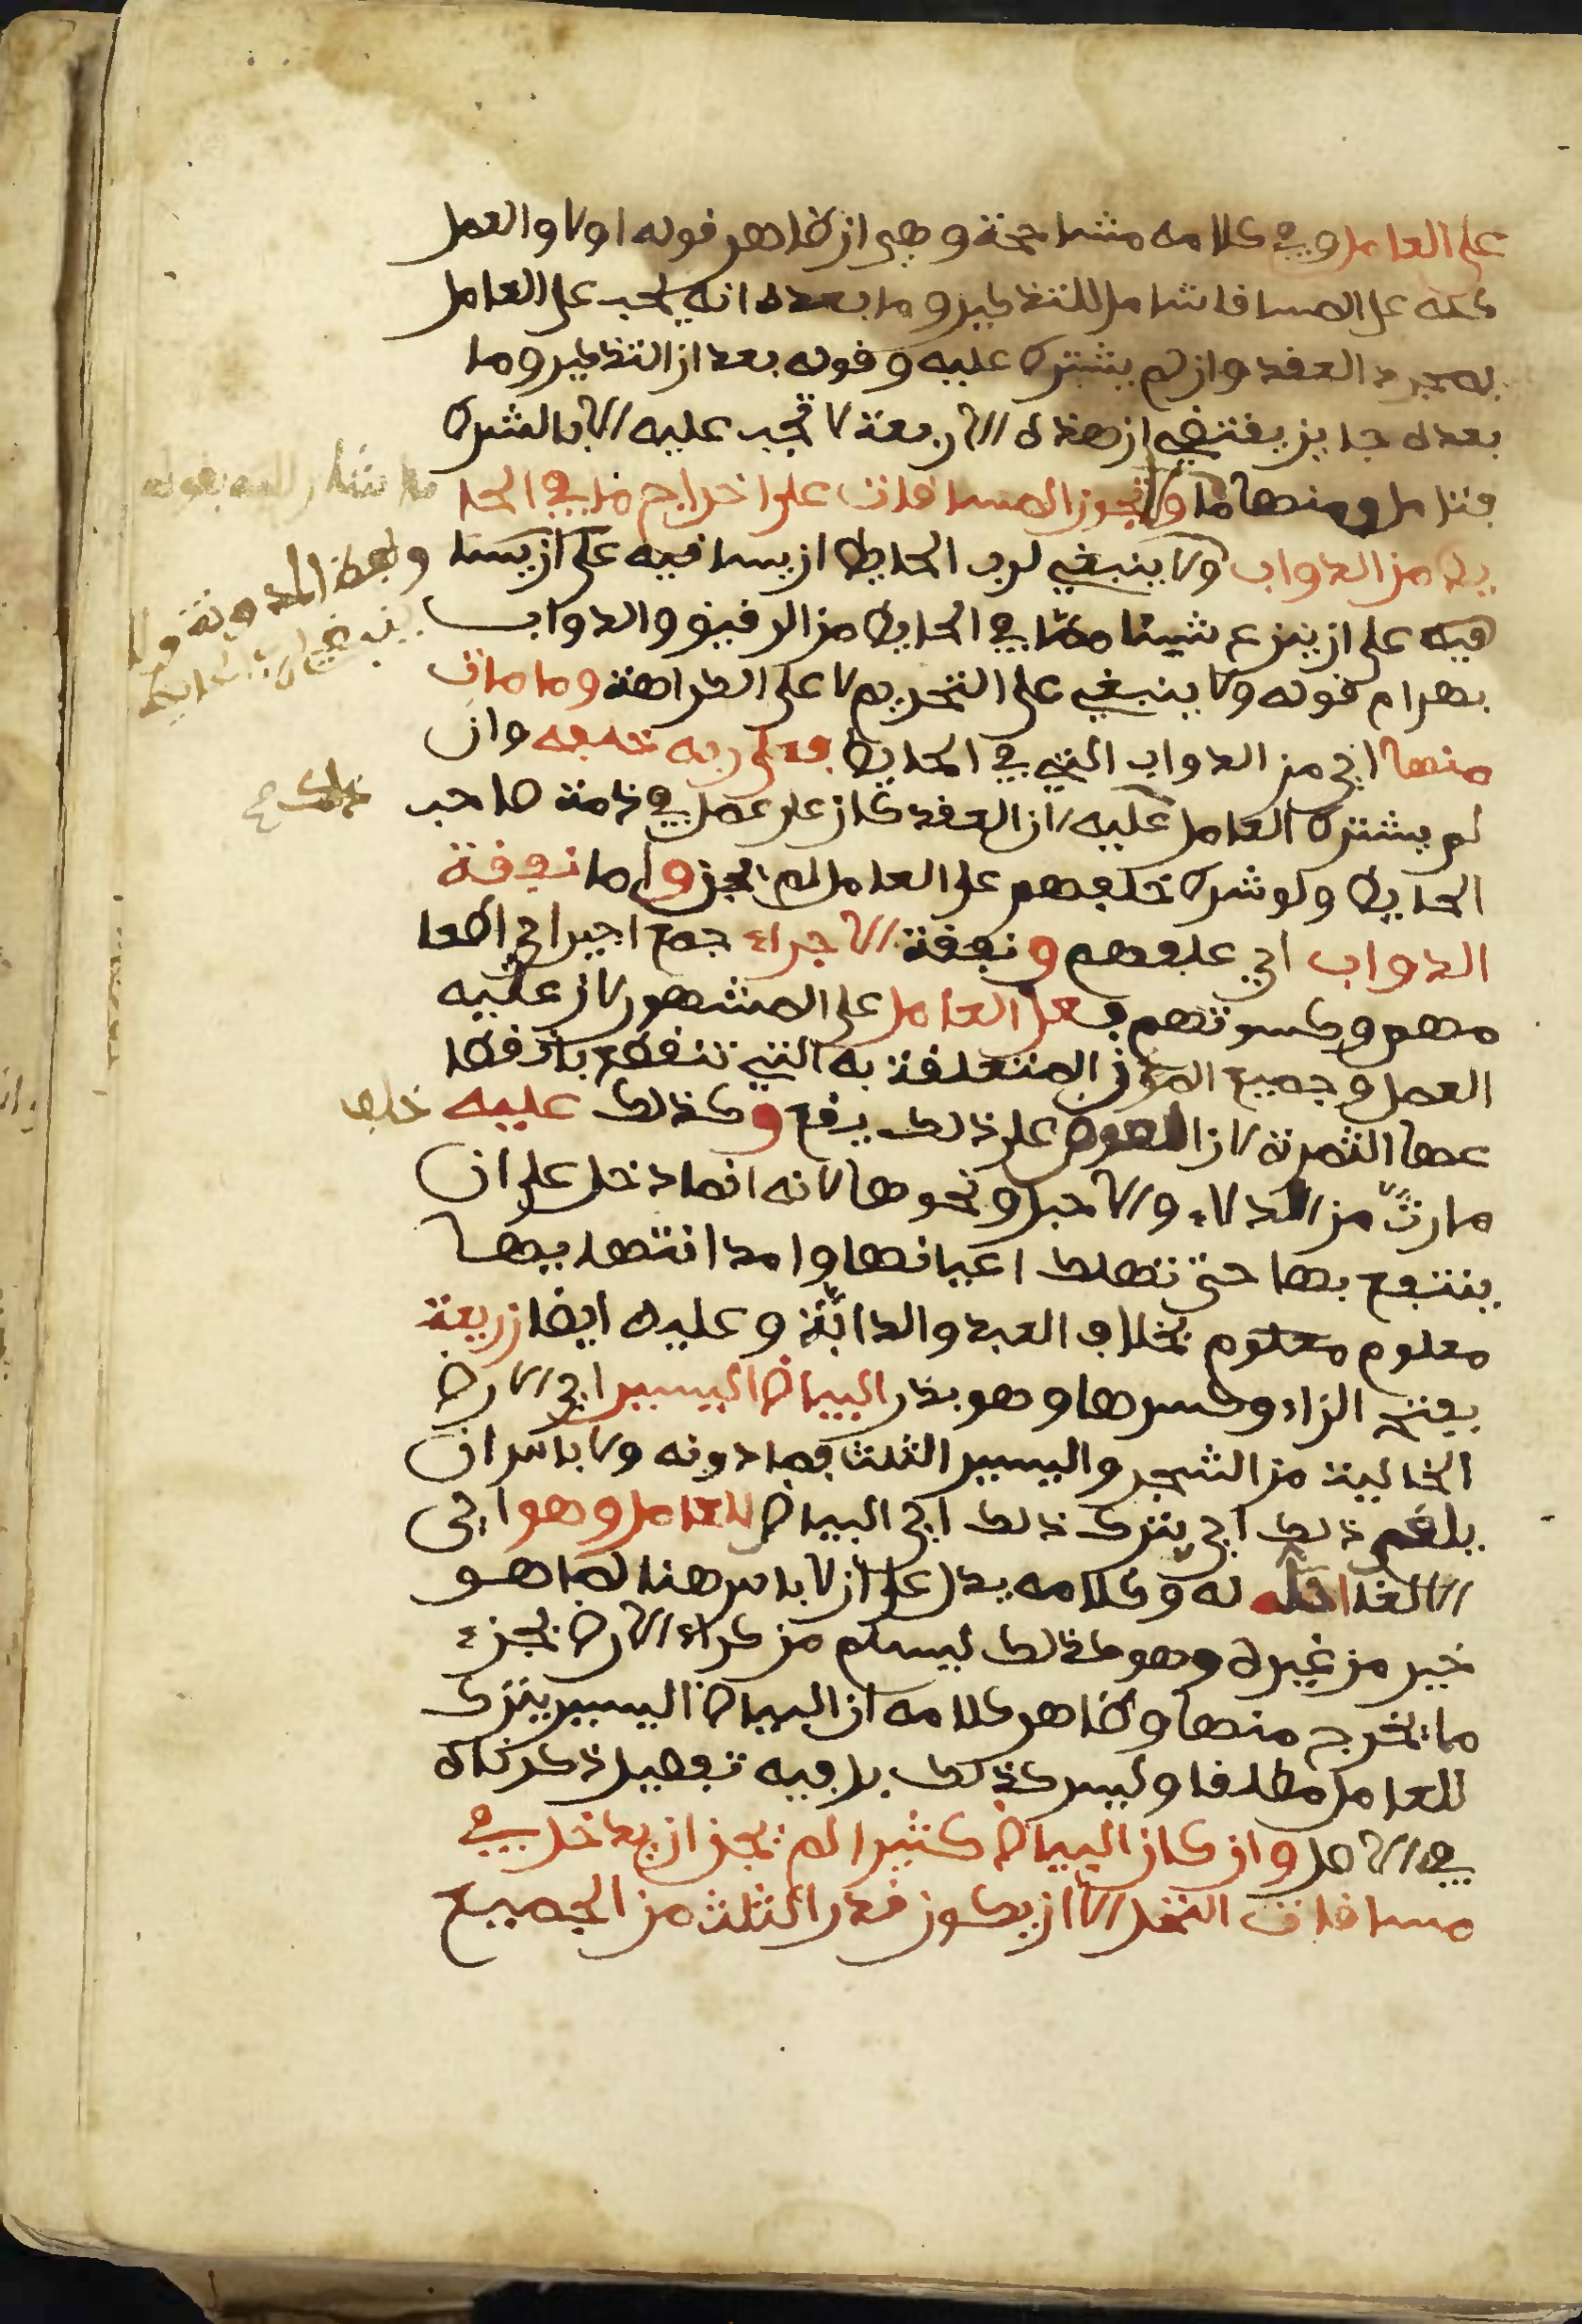 على العامل وفي كلامه مشاححة وهي ان ظاهر قوله اولا والعمل
كله على المساقا شامل للتذكير وما بعده انه يجب على العامل
بمجرد العقد وان لم يشترط عليه وقوله بعد ان التذكير وما
بعده جايز يقتضي ان هذه الاربعة لا تجب عليه الا بالشرط
فتامل ومنها ما ولا تجوز المساقات على اخراج ما في الحا
يط من الدواب ولا ينبغي لرب الحايط ان يساقيه على ان يستا
فيه على ان ينزع شيئا مما في الحايط من الرقيق والدواب
بهرام قوله ولا ينبغي على التحريم لا على الكراهة وما مات
منها اي من الدواب التي في الحايط فعلى ربه خلفه وان
لم يشترط العامل عليه لان العقد كان على عمل في ذمة صاحب
الحايط ولو شرط خلفهم على العامل لم يجز واما نفقة
الدواب اي علفهم ونفقة الاجراء جمع اجير اي اطعا
مهم وكسوتهم فعلى العامل على المشهور لان عليه
العمل وجميع المؤن المتعلقة به التي تنقطع بانقطا
عها الثمرة لان العوض على ذلك يرفع وكذلك عليه خلف
ما رث من الدلاء والاحبل ونحوها لانه انما دخل على ان
ينتفع بها حتى تهلك اعيانها وامد انتهايها
معلوم معلوم بخلاف العبد والدابة وعليه ايضا زريعة
بفتح الزاء وكسرها وهو بذر البياض اليسير اي الارض
الخالية من الشجر واليسير الثلث فما دونه ولا باس ان
يلغى ذلك اي يترك ذلك اي البياض للعامل وهو اي
الالغا احله له وكلامه يدل على ان لا باس هنا لما هو
خير من غيره وهو كذلك ليسلم من كراء الارض بجزء
ما يخرج منها وظاهر كلامه ان البياض اليسير يترك
للعامل مطلقا وليس كذلك بل فيه تفصيل ذكرناه
في الاصل وان كان البياض كثيرا لم يجز ان يدخل في
مساقات النخل الا ان يكون قدر الثلث من الجميع